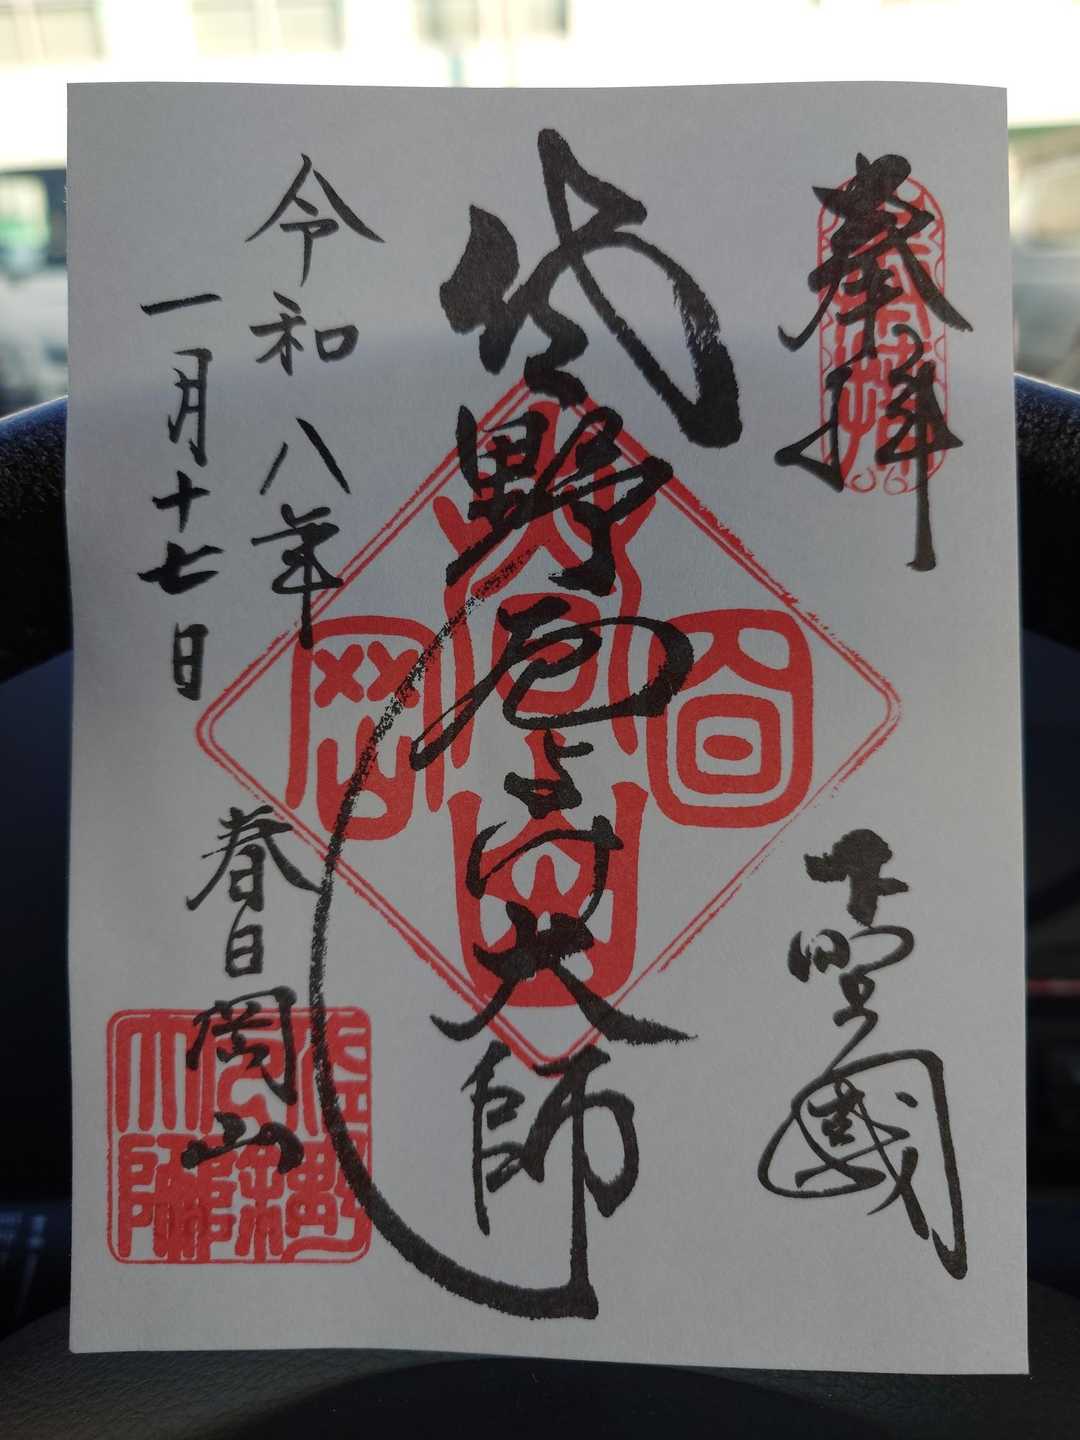 奉拝
下野國
佐野厄よけ大師
令和八年
一月十七日
春日岡山